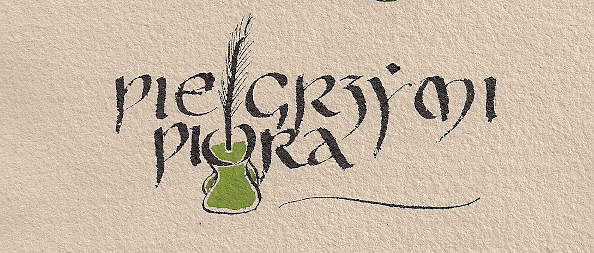 PIELGRZYMI
PIÓRA